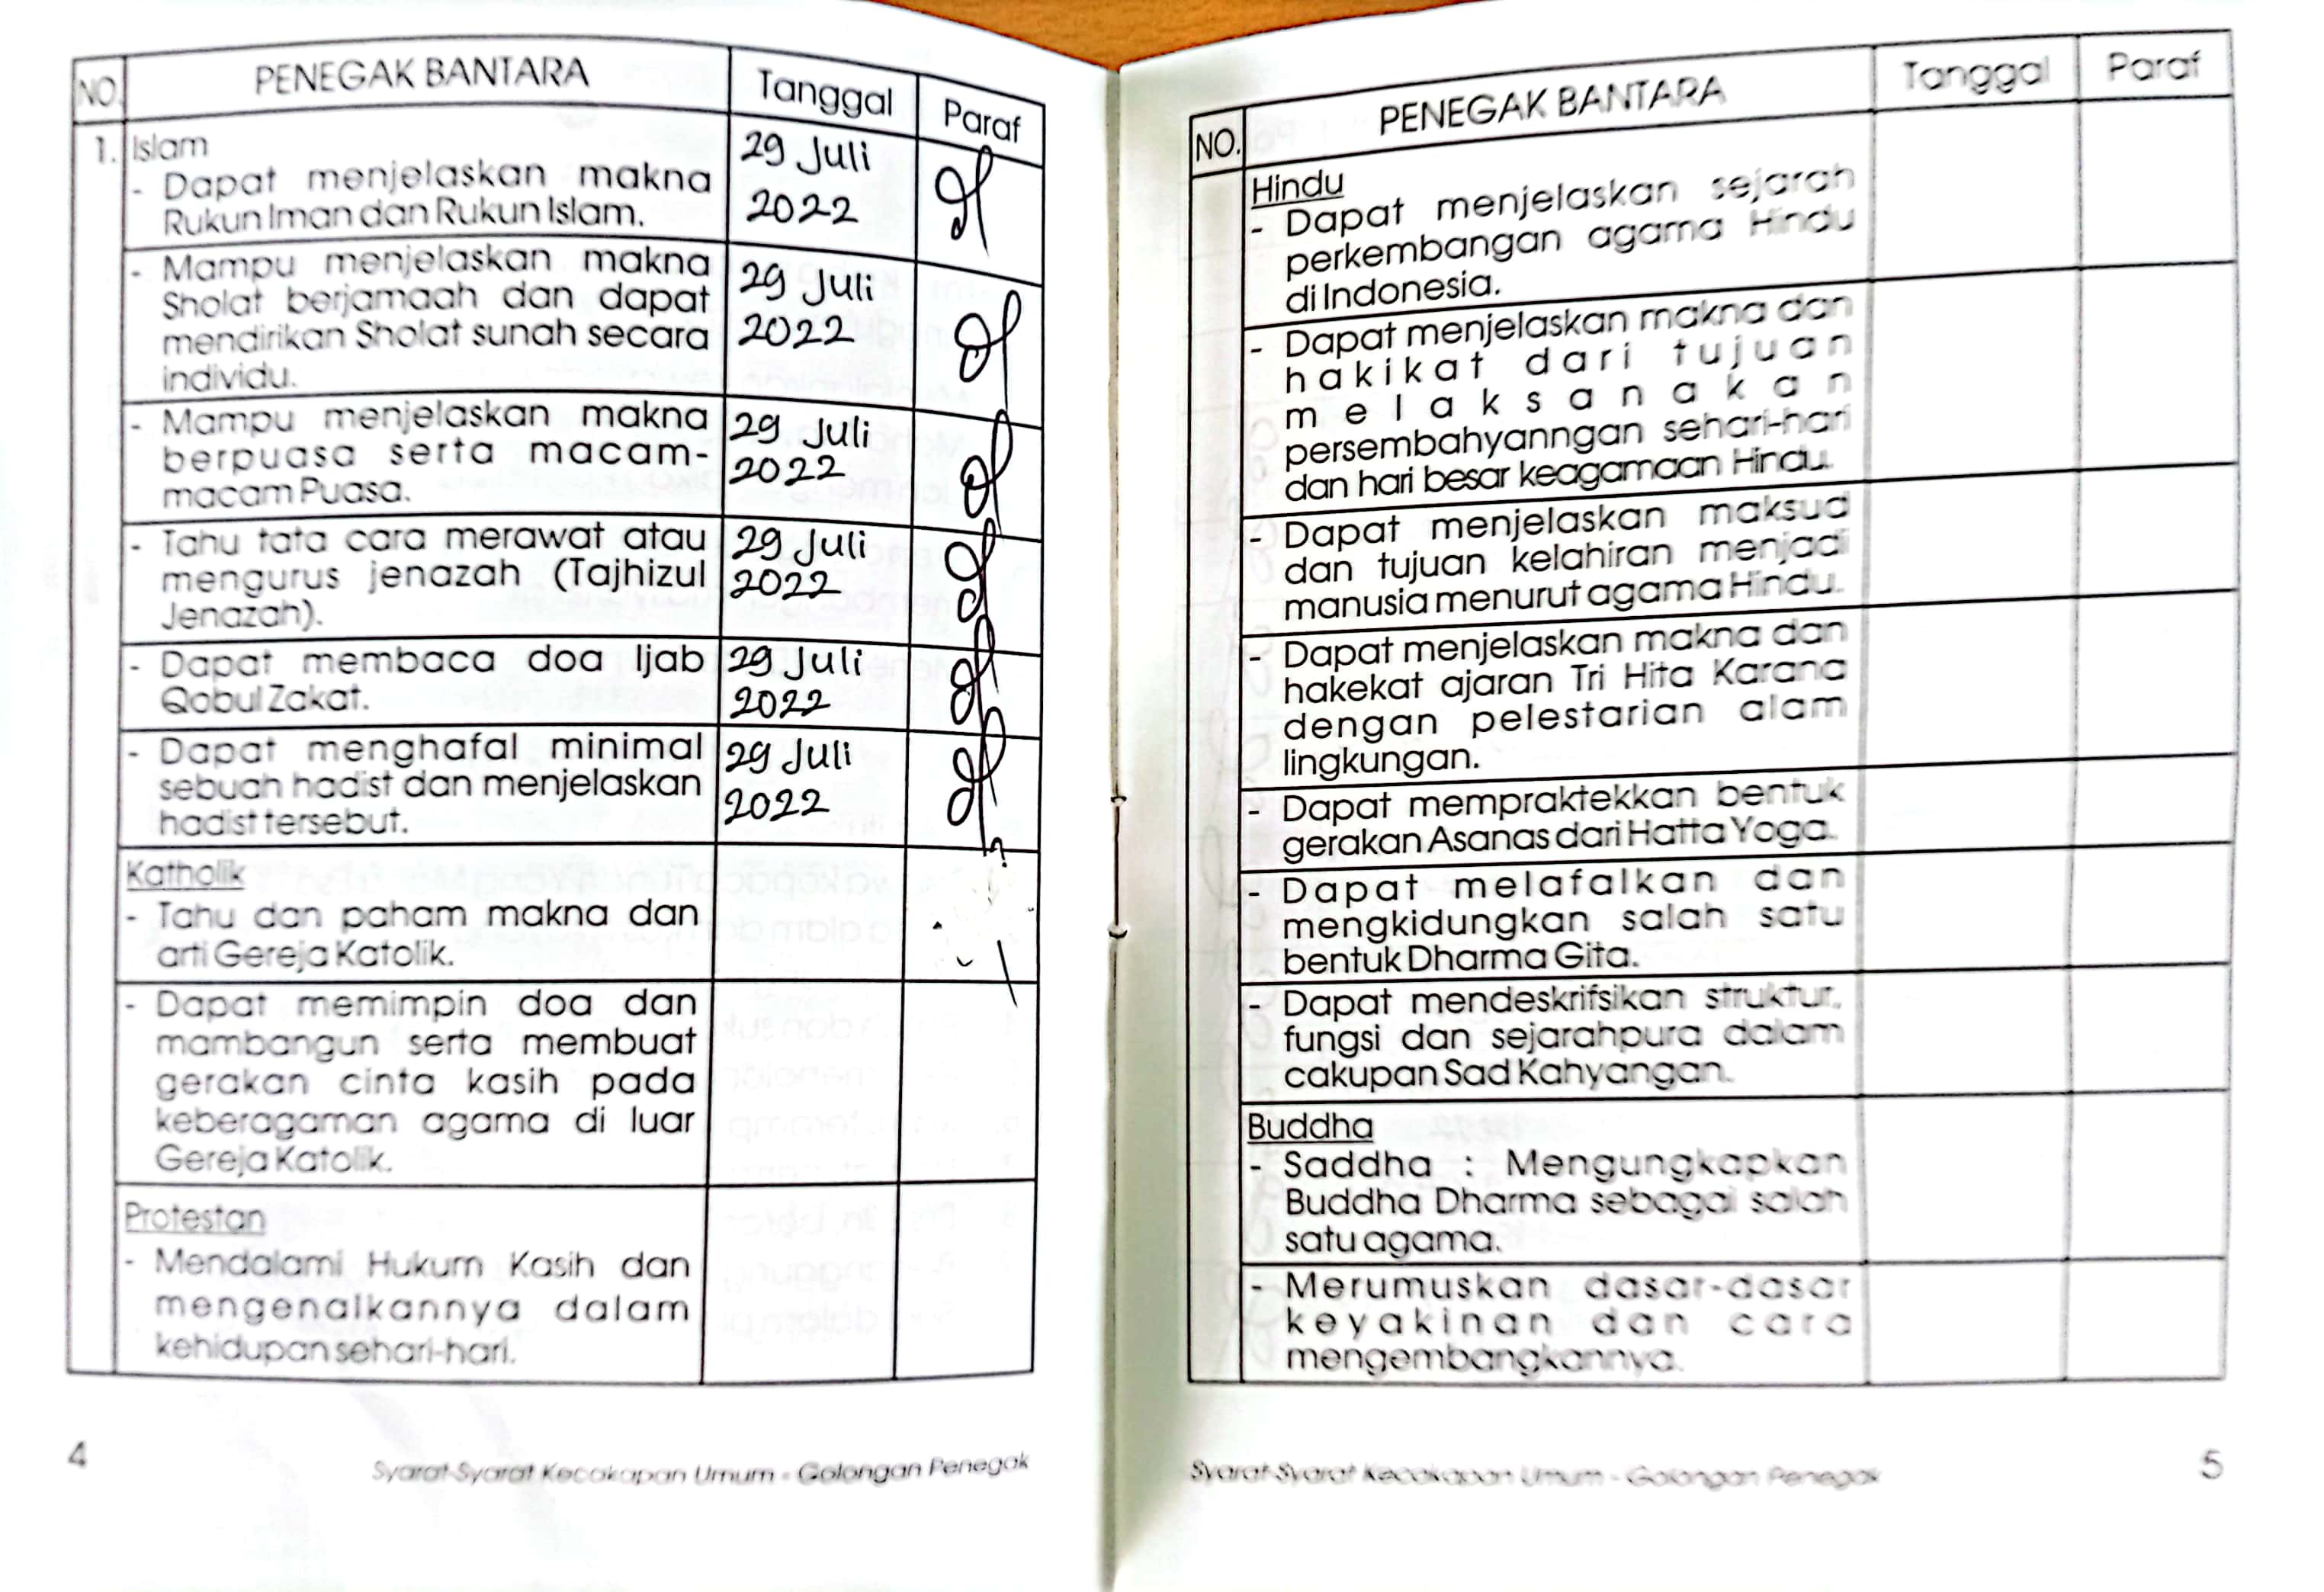 NO. PENEGAK BANTARA Tanggal Paraf
1. Islam
- Dapat menjelaskan makna
Rukun Iman dan Rukun Islam.
29 Juli
2022
- Mampu menjelaskan makna
Sholat berjamaah dan dapat
mendirikan Sholat sunah secara
individu.
29 Juli
2022
- Mampu menjelaskan makna
berpuasa serta macam-
macam Puasa.
29 Juli
2022
- Tahu tata cara merawat atau
mengurus jenazah (Tajhizul
Jenazah).
29 Juli
2022
- Dapat membaca doa Ijab
Qobul Zakat.
29 Juli
2022
- Dapat menghafal minimal
sebuah hadist dan menjelaskan
hadist tersebut.
29 Juli
2022
Katholik
- Tahu dan paham makna dan
arti Gereja Katolik.
- Dapat memimpin doa dan
mambangun serta membuat
gerakan cinta kasih pada
keberagaman agama di luar
Gereja Katolik.
Protestan
- Mendalami Hukum Kasih dan
mengenalkannya dalam
kehidupan sehari-hari.
4
Syarat-Syarat Kecakapan Umum - Golongan Penegak
NO. PENEGAK BANTARA Tanggal Paraf
Hindu
- Dapat menjelaskan sejarah
perkembangan agama Hindu
di Indonesia.
- Dapat menjelaskan makna dan
hakikat dari tujuan
melaksanakan
persembahyanngan sehari-hari
dan hari besar keagamaan Hindu.
- Dapat menjelaskan maksud
dan tujuan kelahiran menjadi
manusia menurut agama Hindu.
- Dapat menjelaskan makna dan
hakekat ajaran Tri Hita Karana
dengan pelestarian alam
lingkungan.
- Dapat mempraktekkan bentuk
gerakan Asanas dari Hatta Yoga.
- Dapat melafalkan dan
mengkidungkan salah satu
bentuk Dharma Gita.
- Dapat mendeskrifsikan struktur,
fungsi dan sejarahpura dalam
cakupan Sad Kahyangan.
Buddha
- Saddha : Mengungkapkan
Buddha Dharma sebagai salah
satu agama.
- Merumuskan dasar-dasar
keyakinan dan cara
mengembangkannya.
Syarat-Syarat Kecakapan Umum - Golongan Penegak
5